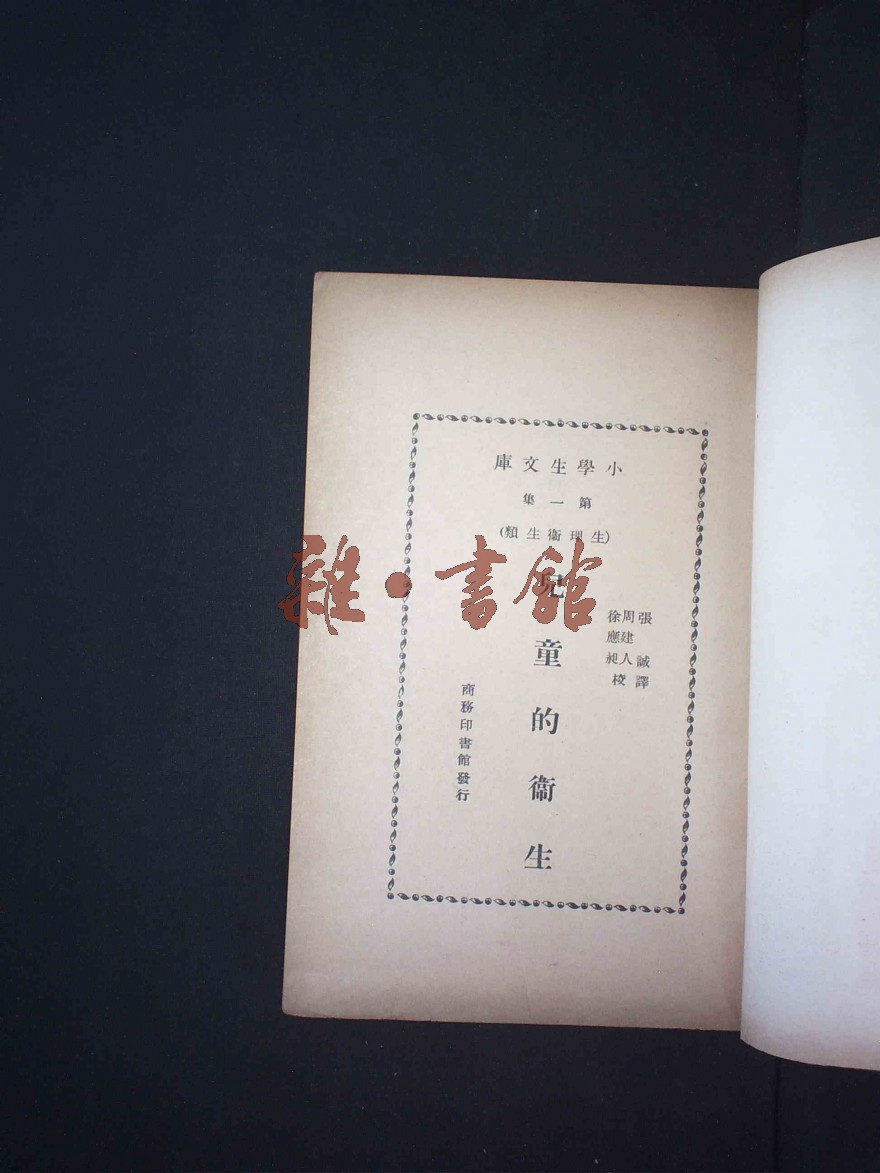 小學生文庫
第一集
(生理衞生類)
張誠譯
周建人
徐應昶校
兒童的衞生
商務印書館發行
雜·書館